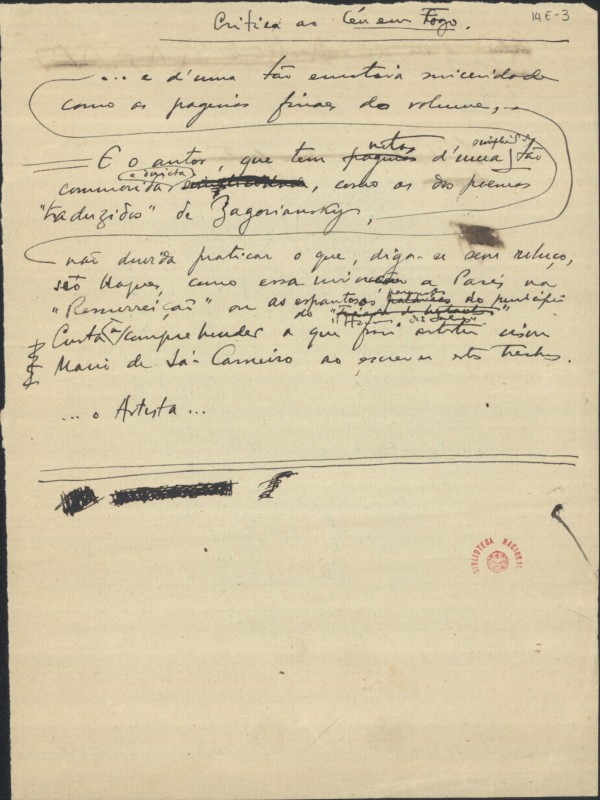 14E-3
Critica ao Céu em Fogo.
... e d'uma tão sinceridade
como as paginas finaes do volume,
notas simplicid.de
E o autor, que tem paginas d'uma tão
e directa
commovida, como as dos poemas
"traduzidos" de Zagoriansky,
não duvida praticar o que, diga-se sem rebuço,
são blagues, como essa a Paris na
paginas
"Ressurreição" ou as espantosas do principio
do
"Homem dos Sonhos"
Custa a comprehender a que fim artistico visou
Mario de Sá-Carneiro ao escrever estes trechos.
... o Artista...
BIBLIOTECA NACIONAL